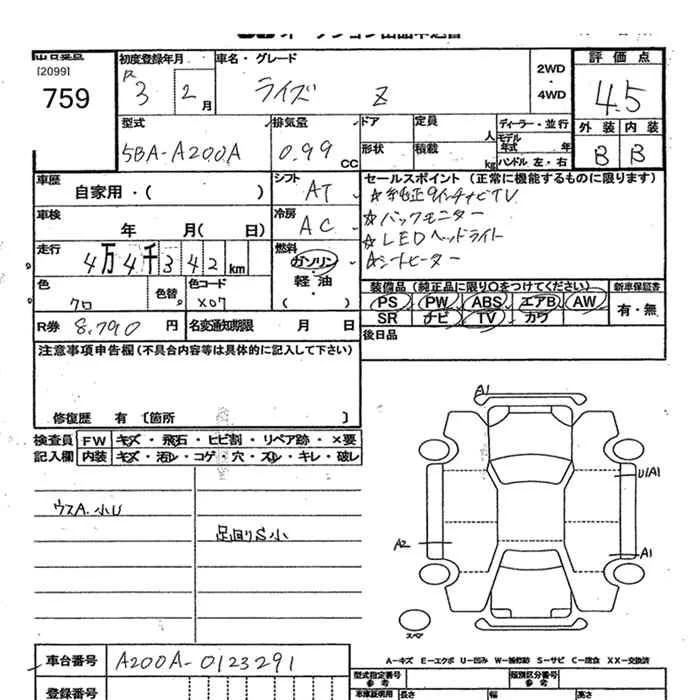 [2099]
759
初度登録年月
R 3 2 月
車名・グレード
ライズ Z
2WD
・
4WD
評価点
4.5
外装 内装
B B
型式
5BA-A200A
排気量
0.99 CC
ドア
定員 人
形状
積載 kg
ディーラー・並行
モデル年式 年
ハンドル 左・右
車歴
自家用・( )
シフト
AT
車検
年 月( 日)
冷房
AC
走行
4万4千342 km
燃料
ガソリン
・
軽油
・
( )
色
クロ
色替
色コード
X07
R券 8,790 円
名変通知期限 月 日
セールスポイント (正常に機能するものに限ります)
☆純正9インチナビTV
☆バックモニター
☆LEDヘッドライト
☆シートヒーター
装備品 (純正品に限り○をつけてください)
PS PW ABS エアB AW
SR ナビ TV カワ
新車保証書
有・無
後日品
注意事項申告欄(不具合内容等は具体的に記入して下さい)
修復歴 有 〔箇所 〕
検査員記入欄
FW キズ・飛石・ヒビ割・リペア跡・×要
内装 キズ・汚レ・コゲ・穴・スレ・キレ・破レ
ウスA.小U
足回りS小
A1
U1A1
A2
A1
スペア
A-キズ E-エクボ U-凹み W-補修跡 S-サビ C-腐食 XX-交換済
車台番号 A200A-0123291
登録番号
型式指定番号
参考
類別区分番号
参考
車庫証明用 長さ 幅 高さ